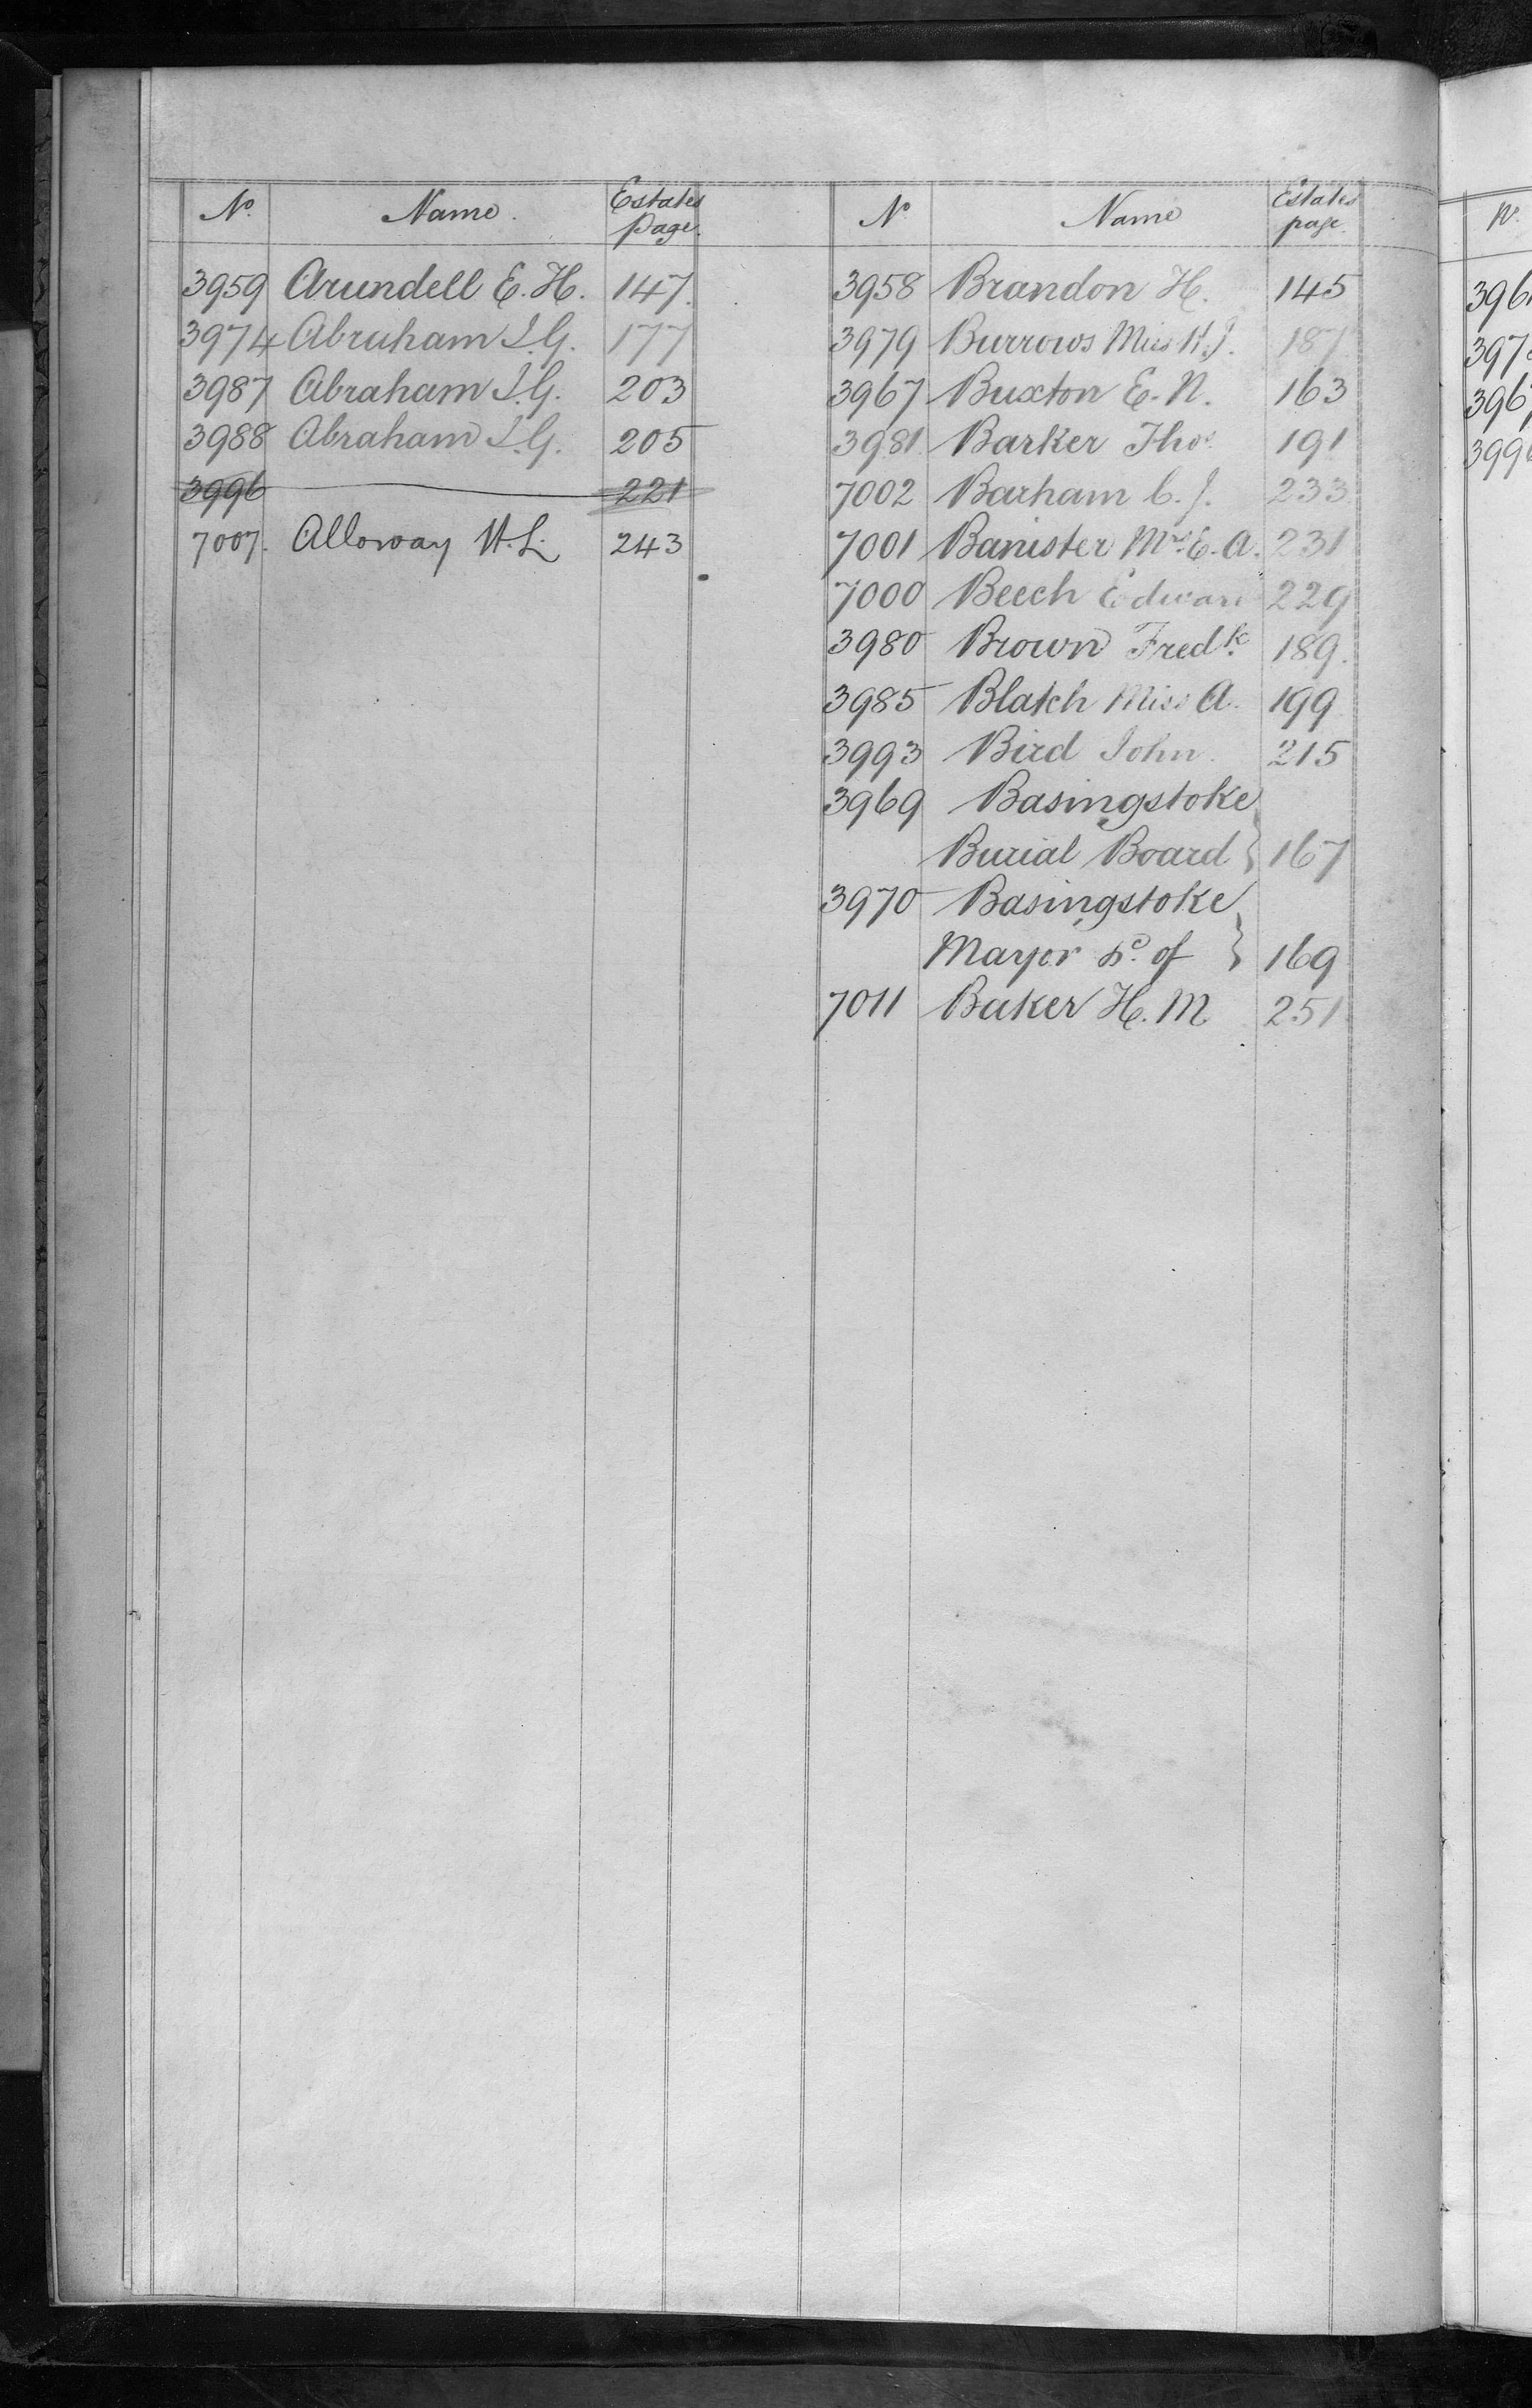 No. Name. Estates Page.
3959 Arundell E. H. 147.
3974 Abraham I. G. 177
3987 Abraham I. G. 203
3988 Abraham I. G. 205
3996 221
7007. Alloway H. L. 243
No Name Estates page.
3958 Brandon H. 145
3979 Burrows Miss H. J. 187
3967 Buxton E. N. 163
3981 Barker Thos. 191
7002 Barham C. J. 233
7001 Banister Mrs. E. A. 231
7000 Beech Edward 229
3980 Brown Fredk. 189.
3985 Blatch Miss A. 199
3993 Bird John. 215
3969 Basingstoke
Burial Board } 167
3970 Basingstoke
Mayor &c. of } 169
7011 Baker H. M 251
No.